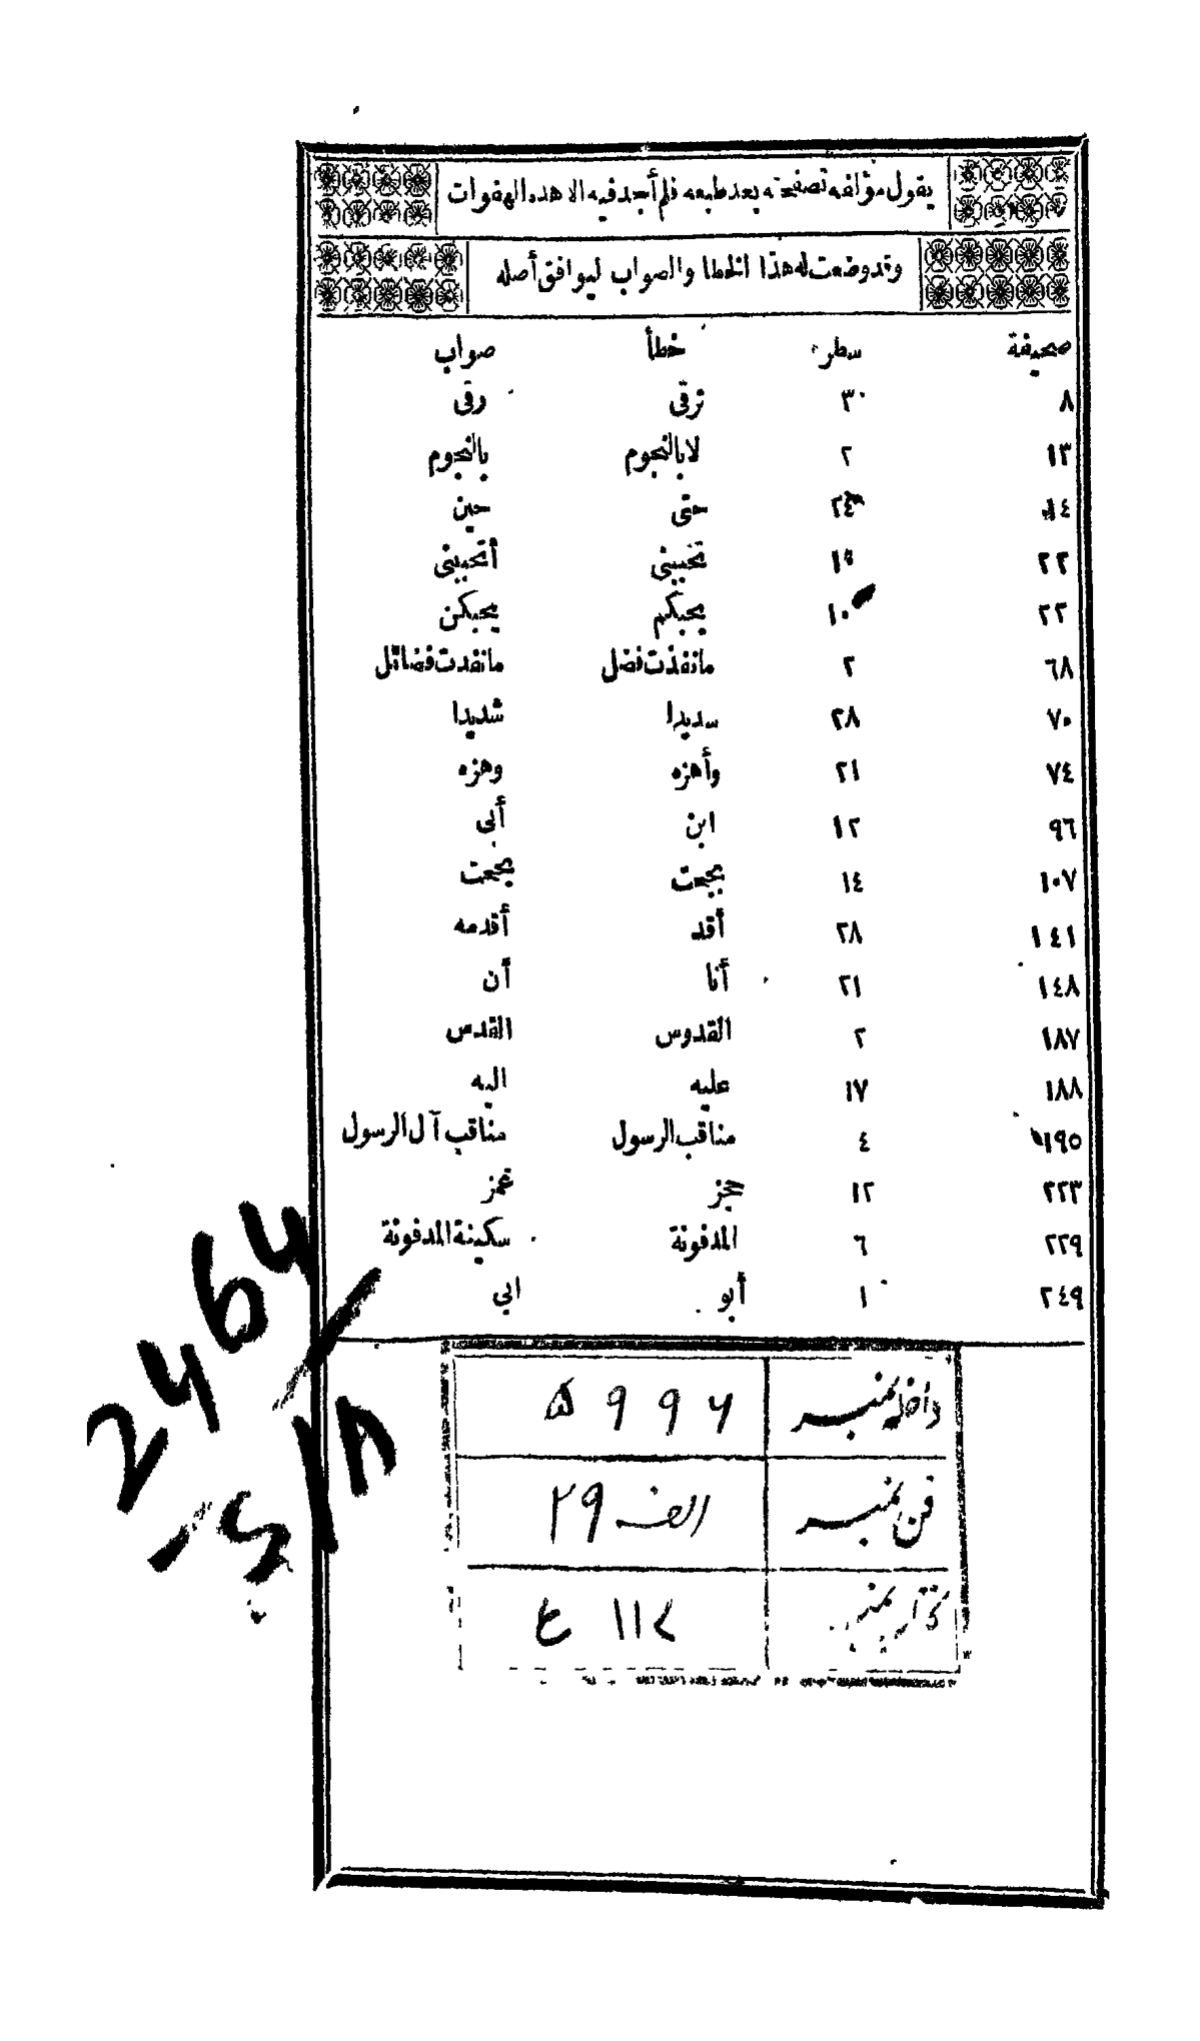 يقول مؤلفه تصفحته بعد طبعه فلم أجد فيه الا هذه الهفوات
وقد وضعت له هذا الخطا والصواب ليوافق أصله
صحيفة سطر خطأ صواب
٨ ٣٠ ترقى رقى
١٣ ٢ لا بالنجوم بالنجوم
١٤ ٢٤ حتى حين
٢٢ ١٥ تحييني أتحييني
٢٢ ١٠ يحبكم يحبكن
٦٨ ٢ ما نفذت فضل ما نفدت فضائل
٧٠ ٢٨ سديدا شديدا
٧٤ ٢١ وأهزه وهزه
٩٦ ١٢ ابن أبى
١٠٧ ١٤
١٤١ ٢٨ أقد أقدمه
١٤٨ ٢١ أنا أن
١٨٧ ٢ القدوس القدس
١٨٨ ١٧ عليه اليه
١٩٥ ٤ مناقب الرسول مناقب آل الرسول
٢٢٣ ١٢
٢٢٩ ٦ المدفونة سكينة المدفونة
٢٤٩ ١ أبو ابي
داخله نمبر ۵۹۹۶
فن نمبر الف ۲۹
نمبر
2464